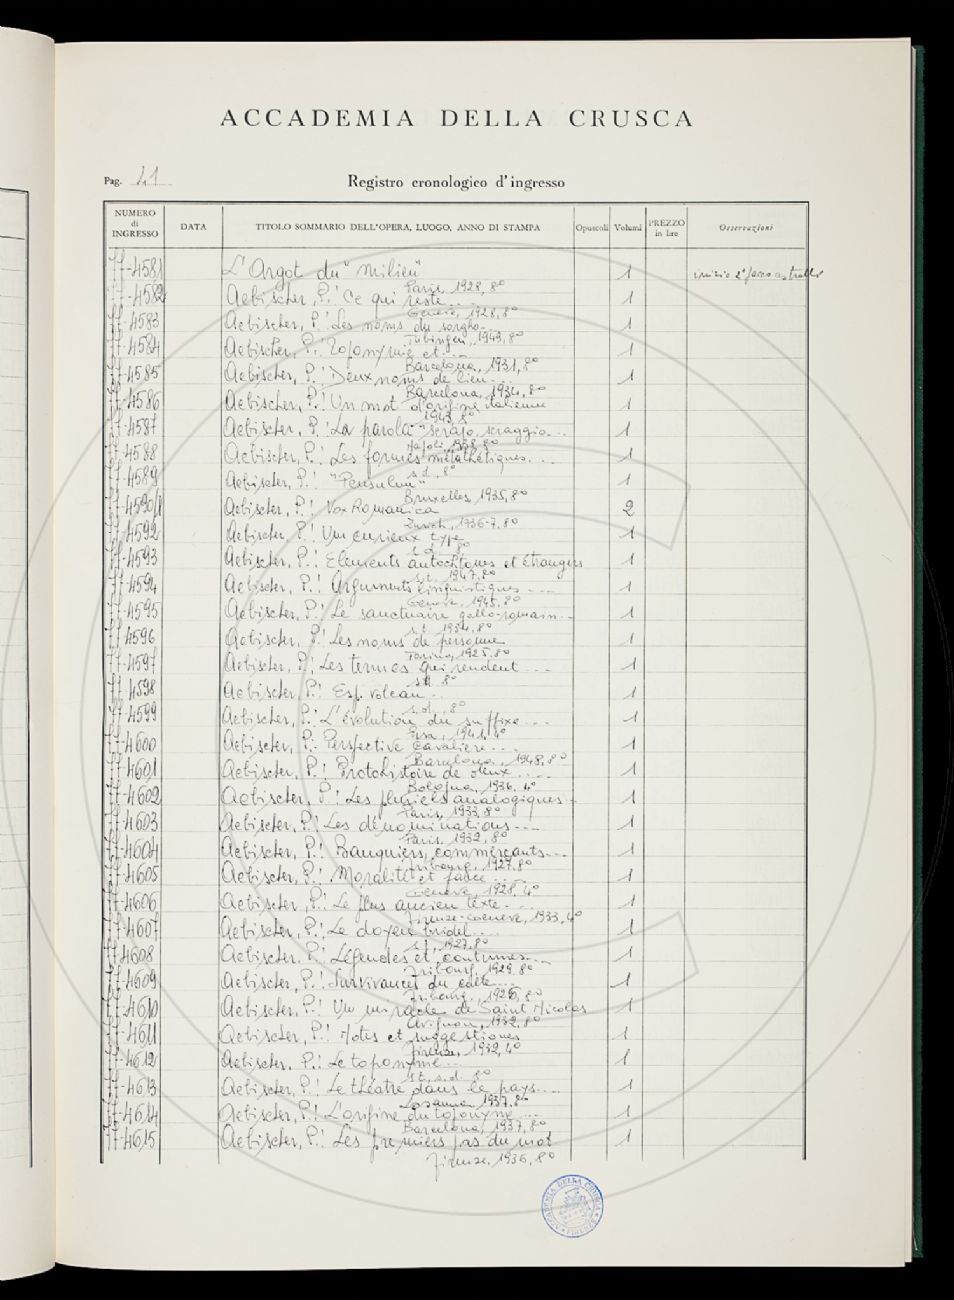 ACCADEMIA DELLA CRUSCA
Pag. 41
Registro cronologico d'ingresso
NUMERO di INGRESSO DATA TITOLO SOMMARIO DELL'OPERA, LUOGO, ANNO DI STAMPA Opuscoli Volumi PREZZO in lire Osservazioni
77-4581 L'Argot du "milieu" 1 inizio
Paris, 1928, 8º
77-4582 Aebischer, P.: Ce qui reste... 1
Genève, 1928, 8º
77-4583 Aebischer, P.: Les noms du sorgho... 1
Tübingen, 1943, 8º
77-4584 Aebischer, P.: Toponymie et... 1
Barcelona, 1931, 8º
77-4585 Aebischer, P.: Deux noms de lieu... 1
Barcelona, 1934, 8º
77-4586 Aebischer, P.: Un mot d'origine italienne 1
1943, 8º
77-4587 Aebischer, P.: La parola "serajo, seraggio... 1
Napoli, 1938, 8º
77-4588 Aebischer, P.: Les formes métathétiques... 1
s.d., 8º
77-4589 Aebischer, P.: "Pensulum" 1
Bruxelles, 1935, 8º
77-4590/1 Aebischer, P.: Vox Romanica 2
Zurich, 1936-7, 8º
77-4592 Aebischer, P.: Un curieux type 1
s.d., 8º
77-4593 Aebischer, P.: Eléments autochtones et étrangers 1
s.t., 1947, 8º
77-4594 Aebischer, P.: Arguments linguistiques... 1
Genève, 1945, 8º
77-4595 Aebischer, P.: Le sanctuaire gallo-romain... 1
s.t. 1934, 8º
77-4596 Aebischer, P.: Les noms de personne 1
Torino, 1925, 8º
77-4597 Aebischer, P.: Les termes qui rendent... 1
s.d. 8º
77-4598 Aebischer, P.: Esp. volcan... 1
s.d., 8º
77-4599 Aebischer, P.: L'évolution du suffixe... 1
Pisa, 1941, 4º
77-4600 Aebischer, P.: Perspective cavalière... 1
Barcelona, 1948, 8º
77-4601 Aebischer, P.: Protohistoire de deux.... 1
Bologna, 1936, 4º
77-4602 Aebischer, P.: Les pluriels analogiques... 1
Paris, 1933, 8º
77-4603 Aebischer, P.: Les dénominations... 1
Paris, 1932, 8º
77-4604 Aebischer, P.: Banquiers, commerçants... 1
Fribourg, 1927, 8º
77-4605 Aebischer, P.: Moralité et farce... 1
Genève, 1928, 4º
77-4606 Aebischer, P.: Le plus ancien texte... 1
Firenze-Genève, 1933, 4º
77-4607 Aebischer, P.: Le doyen Bridel... 1
s.t., 1927, 8º
77-4608 Aebischer, P.: Légendes et coutumes... 1
Fribourg, 1929, 8º
77-4609 Aebischer, P.: Survivances du culte... 1
Fribourg, 1926, 8º
77-4610 Aebischer, P.: Un miracle de Saint Nicolas 1
Avignon, 1932, 8º
77-4611 Aebischer, P.: Notes et suggestions 1
Firenze, 1932, 4º
77-4612 Aebischer, P.: Le toponyme... 1
s.t. s.d. 8º
77-4613 Aebischer, P.: Le théatre dans le pays... 1
Losanna 1937, 8º
77-4614 Aebischer, P.: L'origine du toponyme... 1
Barcelona, 1937, 8º
77-4615 Aebischer, P.: Les premiers pas du mot 1
Firenze, 1936, 8º
ACCADEMIA DELLA CRUSCA FIRENZE